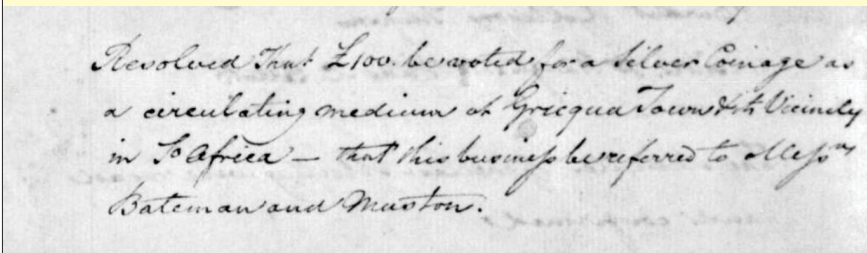 Resolved That £100. be voted for a Silver Coinage as
a circulating medium at Gricqua Town & its Vicinity
in So. Africa — that this business be referred to Messrs
Bateman and Muston.